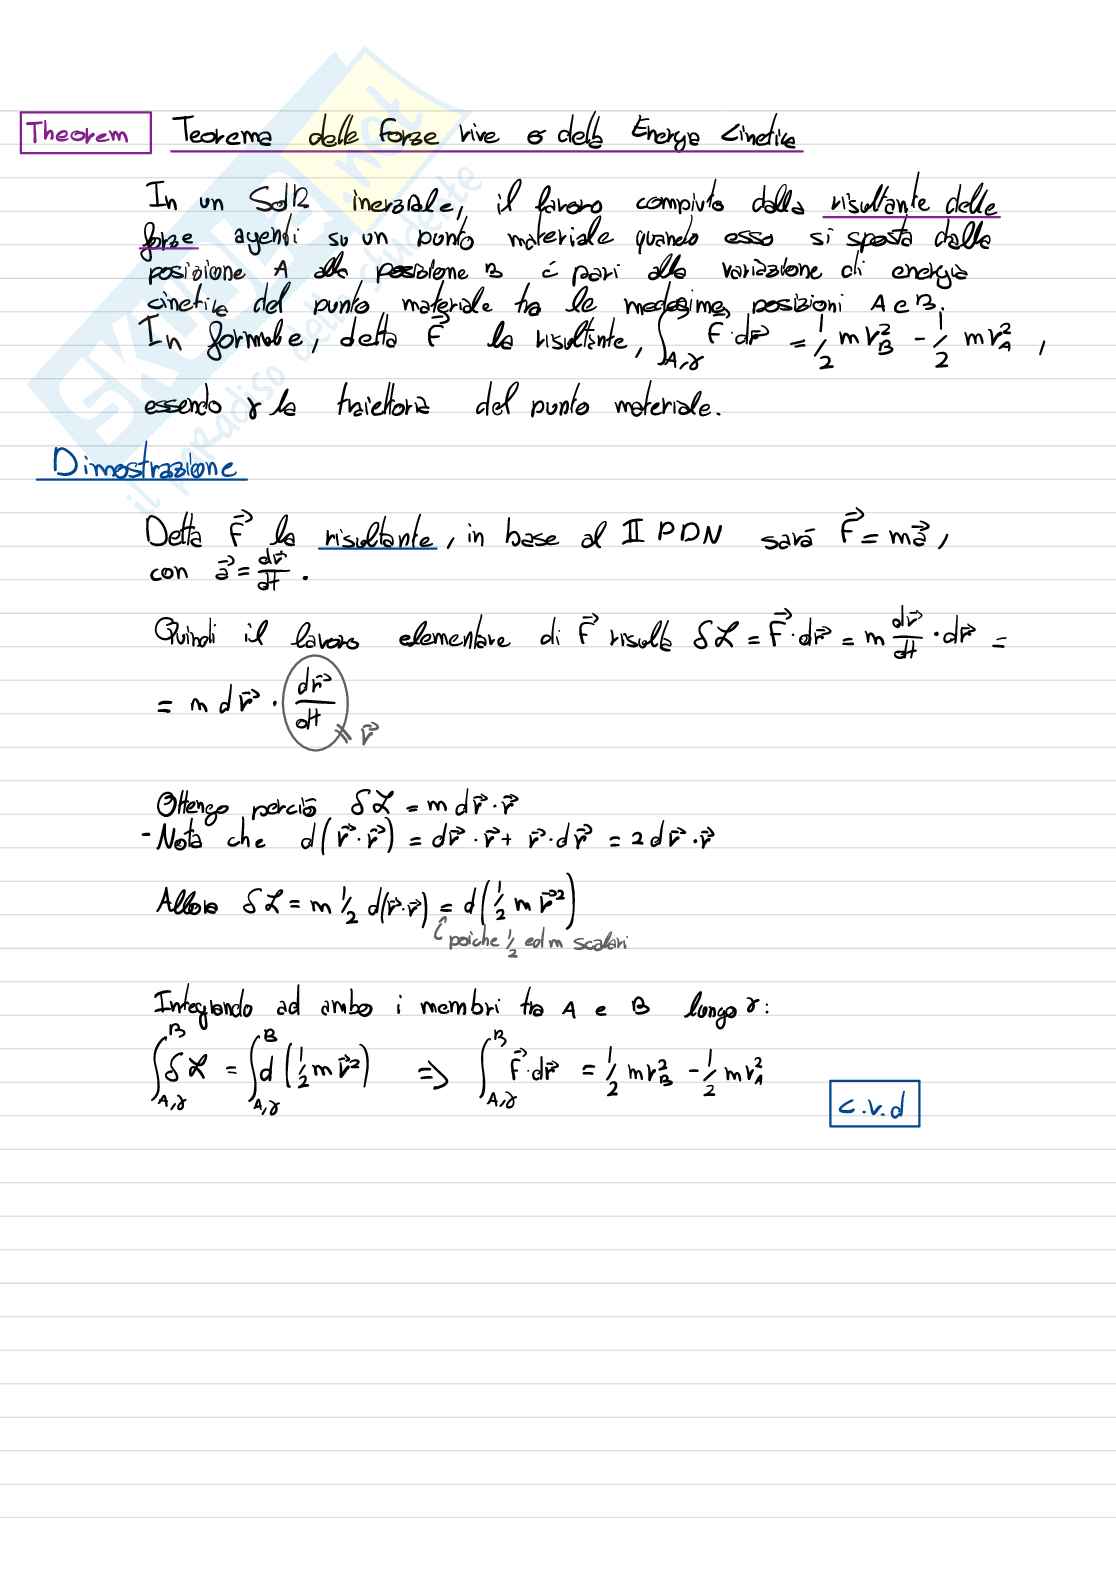 Theorem Teorema delle forze vive o della Energia Cinetica
In un SdR inerziale, il lavoro compiuto dalla risultante delle
forze agenti su un punto materiale quando esso si sposta dalla
posizione A alla posizione B é pari alla variazione di energia
cinetica del punto materiale tra le medesime posizioni A e B.
In formule, detta F⃗ la risultante, ∫_{A,γ}^{B} F⃗·dr⃗ = 1/2 m v_B² - 1/2 m v_A² ,
essendo γ la traiettoria del punto materiale.
Dimostrazione
Detta F⃗ la risultante, in base al II PDN sará F⃗ = ma⃗ ,
con a⃗ = dv⃗/dt .
Quindi il lavoro elementare di F⃗ risulta δL = F⃗·dr⃗ = m dv⃗/dt · dr⃗ =
= m dv⃗ · dr⃗/dt = v⃗
Ottengo perció δL = m dv⃗·v⃗
- Nota che d(v⃗·v⃗) = dv⃗·v⃗ + v⃗·dv⃗ = 2 dv⃗·v⃗
Allora δL = m 1/2 d(v⃗·v⃗) = d(1/2 m v⃗²)
poiche 1/2 ed m scalari
Integrando ad ambo i membri tra A e B lungo γ:
∫_{A,γ}^{B} δL = ∫_{A,γ}^{B} d(1/2 m v⃗²) ⇒ ∫_{A,γ}^{B} F⃗·dr⃗ = 1/2 m v_B² - 1/2 m v_A²
c.v.d
SKUOLA.net
il paradiso dello studente